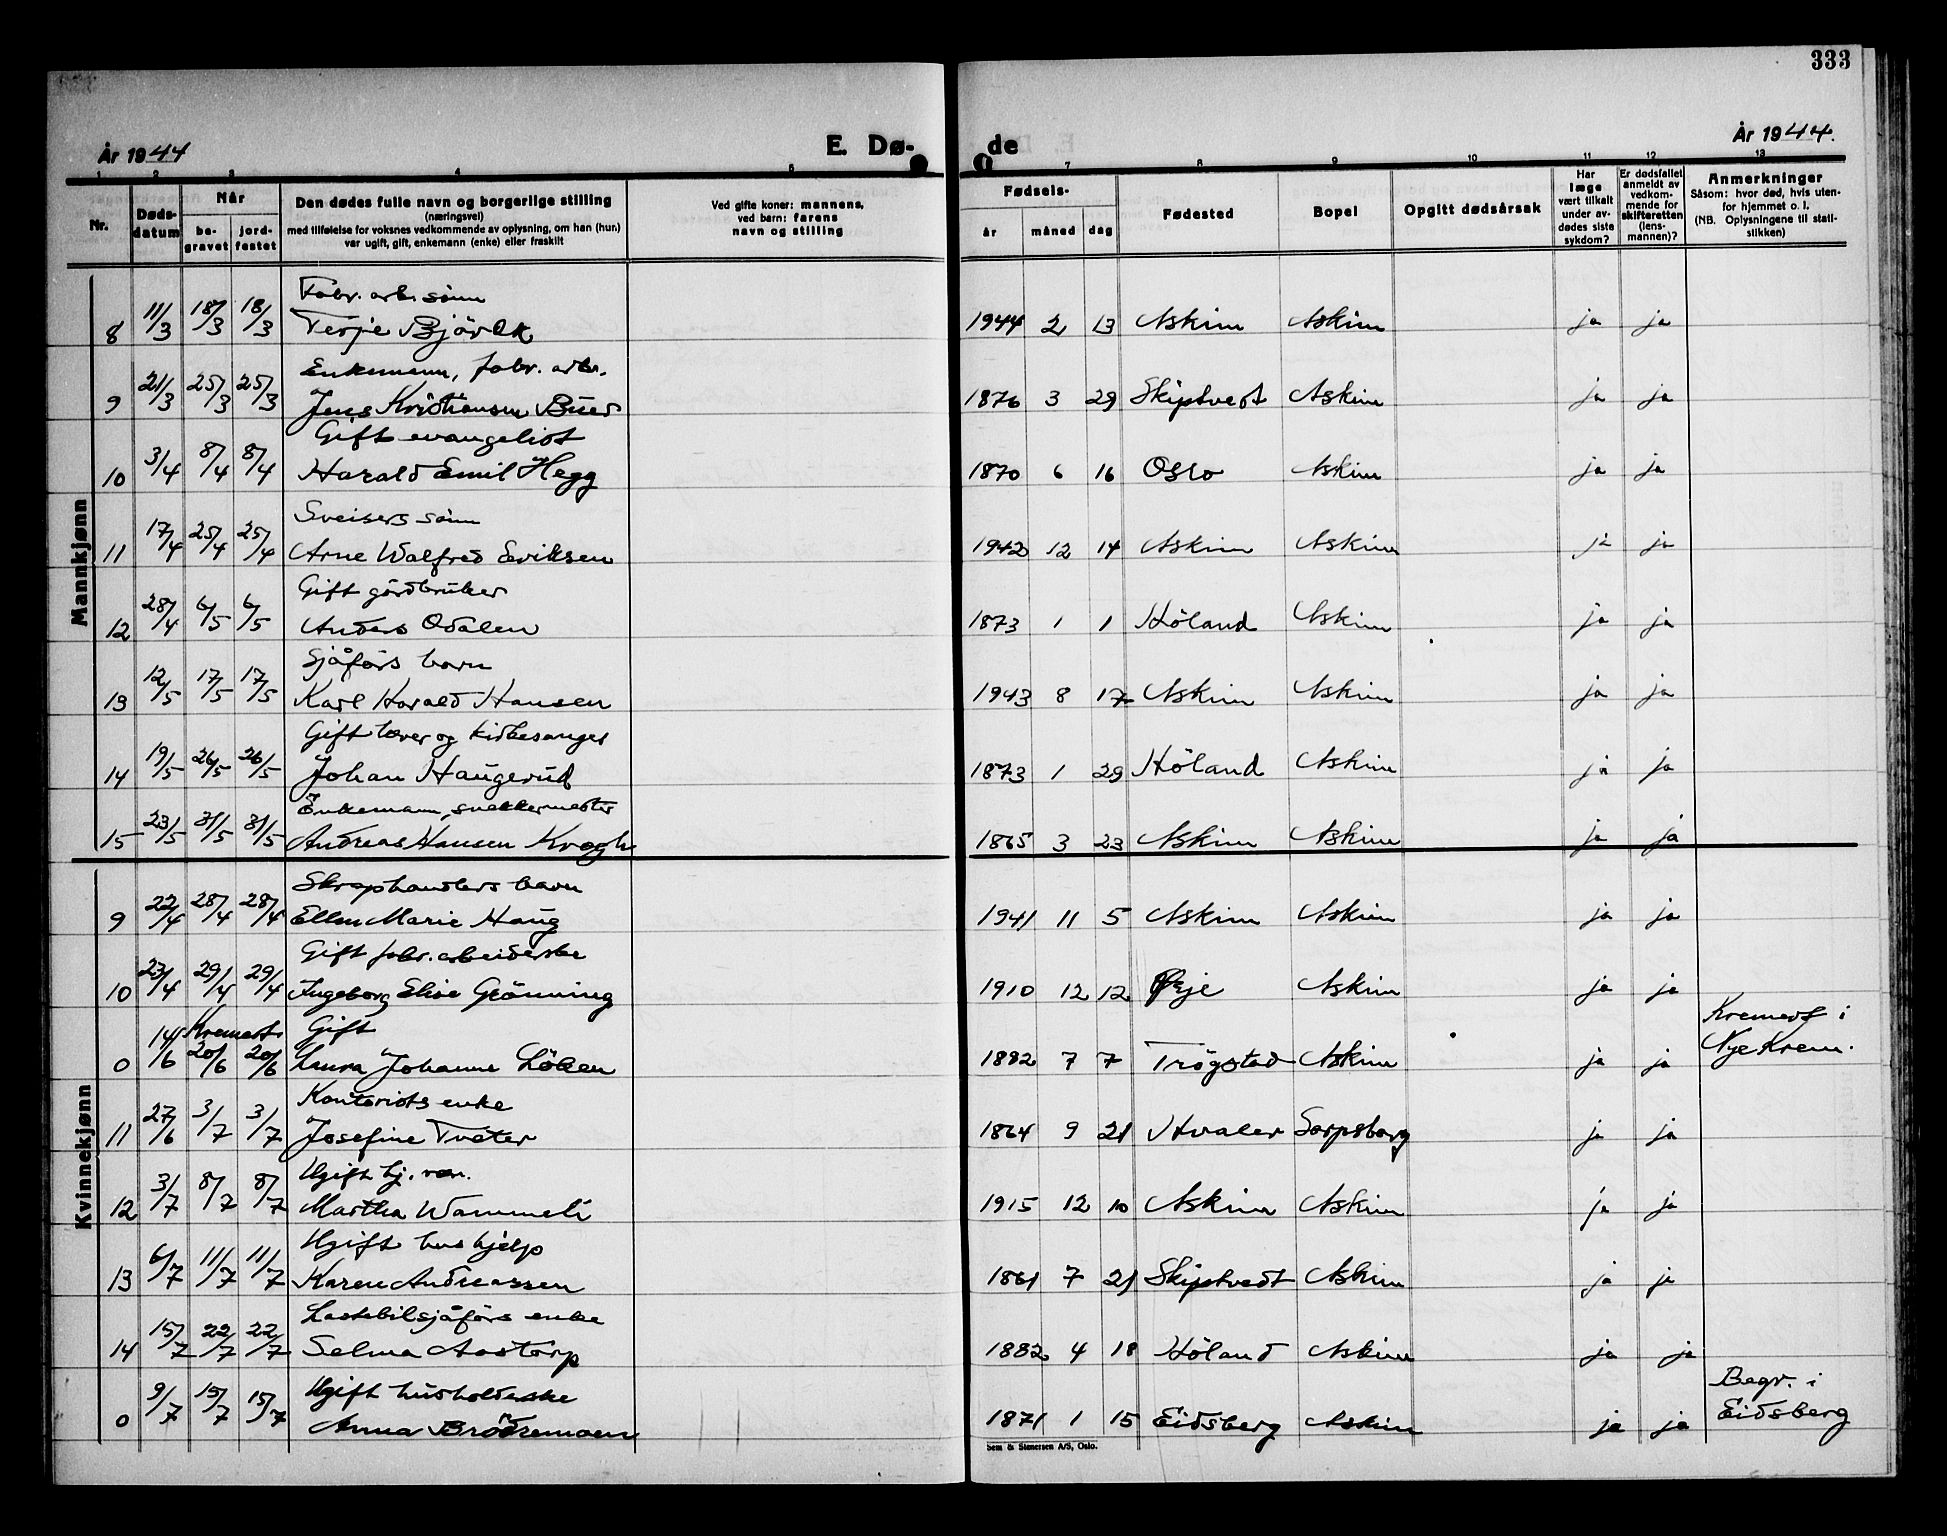 333
År 1944
E. Dø-
de
År 1944.
1 2 3 4 5
7 8 9 10 11 12 13
Nr.
Døds-
datum
Når
be-
gravet
jord-
festet
Den dødes fulle navn og borgerlige stilling
(næringsvei)
med tilføielse for voksnes vedkommende av oplysning, om han (hun)
var ugift, gift, enkemann (enke) eller fraskilt
Ved gifte koner: mannens,
ved barn: farens
navn og stilling
Fødsels-
år måned dag
Fødested
Bopel
Opgitt dødsårsak
Har
læge
vært tilkalt
under av-
dødes siste
sykdom?
Er dødsfallet
anmeldt av
vedkom-
mende for
skifteretten
(lens-
mannen)?
Anmerkninger
Såsom: hvor død, hvis uten-
for hjemmet o. l.
(NB. Oplysningene til stati-
stikken)
Mannkjønn
Fabr. arb. sønn
8 11/3 18/3 18/3 Terje Bjørck 1944 2 13 Askim Askim ja ja
Enkemann, fabr. arb.
9 21/3 25/3 25/3 Jens Kristiansen Buer 1876 3 29 Skiptvedt Askim ja ja
Gift evangelist
10 3/4 8/4 8/4 Harald Emil Hegg 1870 6 16 Oslo Askim ja ja
Sveisers sønn
11 17/4 25/4 25/4 Arne Walfred Eriksen 1942 12 14 Askim Askim ja ja
Gift gårdbruker
12 28/4 6/5 6/5 Anders Ødalen 1873 1 1 Höland Askim ja ja
Sjåførs barn
13 12/5 17/5 17/5 Karl Harald Hansen 1943 8 17 Askim Askim ja ja
Gift lærer og kirkesanger
14 19/5 26/5 26/5 Johan Haugerud 1873 1 29 Höland Askim ja ja
Enkemann, snekkermester
15 23/5 31/5 31/5 Andreas Hansen Krogh 1865 3 23 Askim Askim ja ja
Kvinnekjønn
Skraphandlers barn
9 22/4 28/4 28/4 Ellen Marie Haug 1941 11 5 Askim Askim ja ja
Gift fabr. arbeiderske
10 23/4 29/4 29/4 Ingeborg Elise Grönning 1910 12 12 Ørje Askim ja ja
Kremert Gift Kremert i
0 14/6 20/6 20/6 Laura Johanne Löken 1882 7 7 Trögstad Askim ja ja Nye Krem.
Kontorists enke
11 27/6 3/7 3/7 Josefine Tveter 1864 9 21 Hvaler Sarpsborg ja ja
Ugift hj. vær.
12 3/7 8/7 8/7 Martha Wammeli 1915 12 10 Askim Askim ja ja
Ugift hushjelp
13 6/7 11/7 11/7 Karen Andreassen 1861 7 21 Skiptvedt Askim ja ja
Lastebilsjåførs enke
14 15/7 22/7 22/7 Selma Aastorp 1882 4 18 Höland Askim ja ja
Ugift husholderske Begr. i
0 9/7 15/7 15/7 Anna Brödremoen 1871 1 15 Eidsberg Askim ja ja Eidsberg
Sem & Stenersen A/S, Oslo.